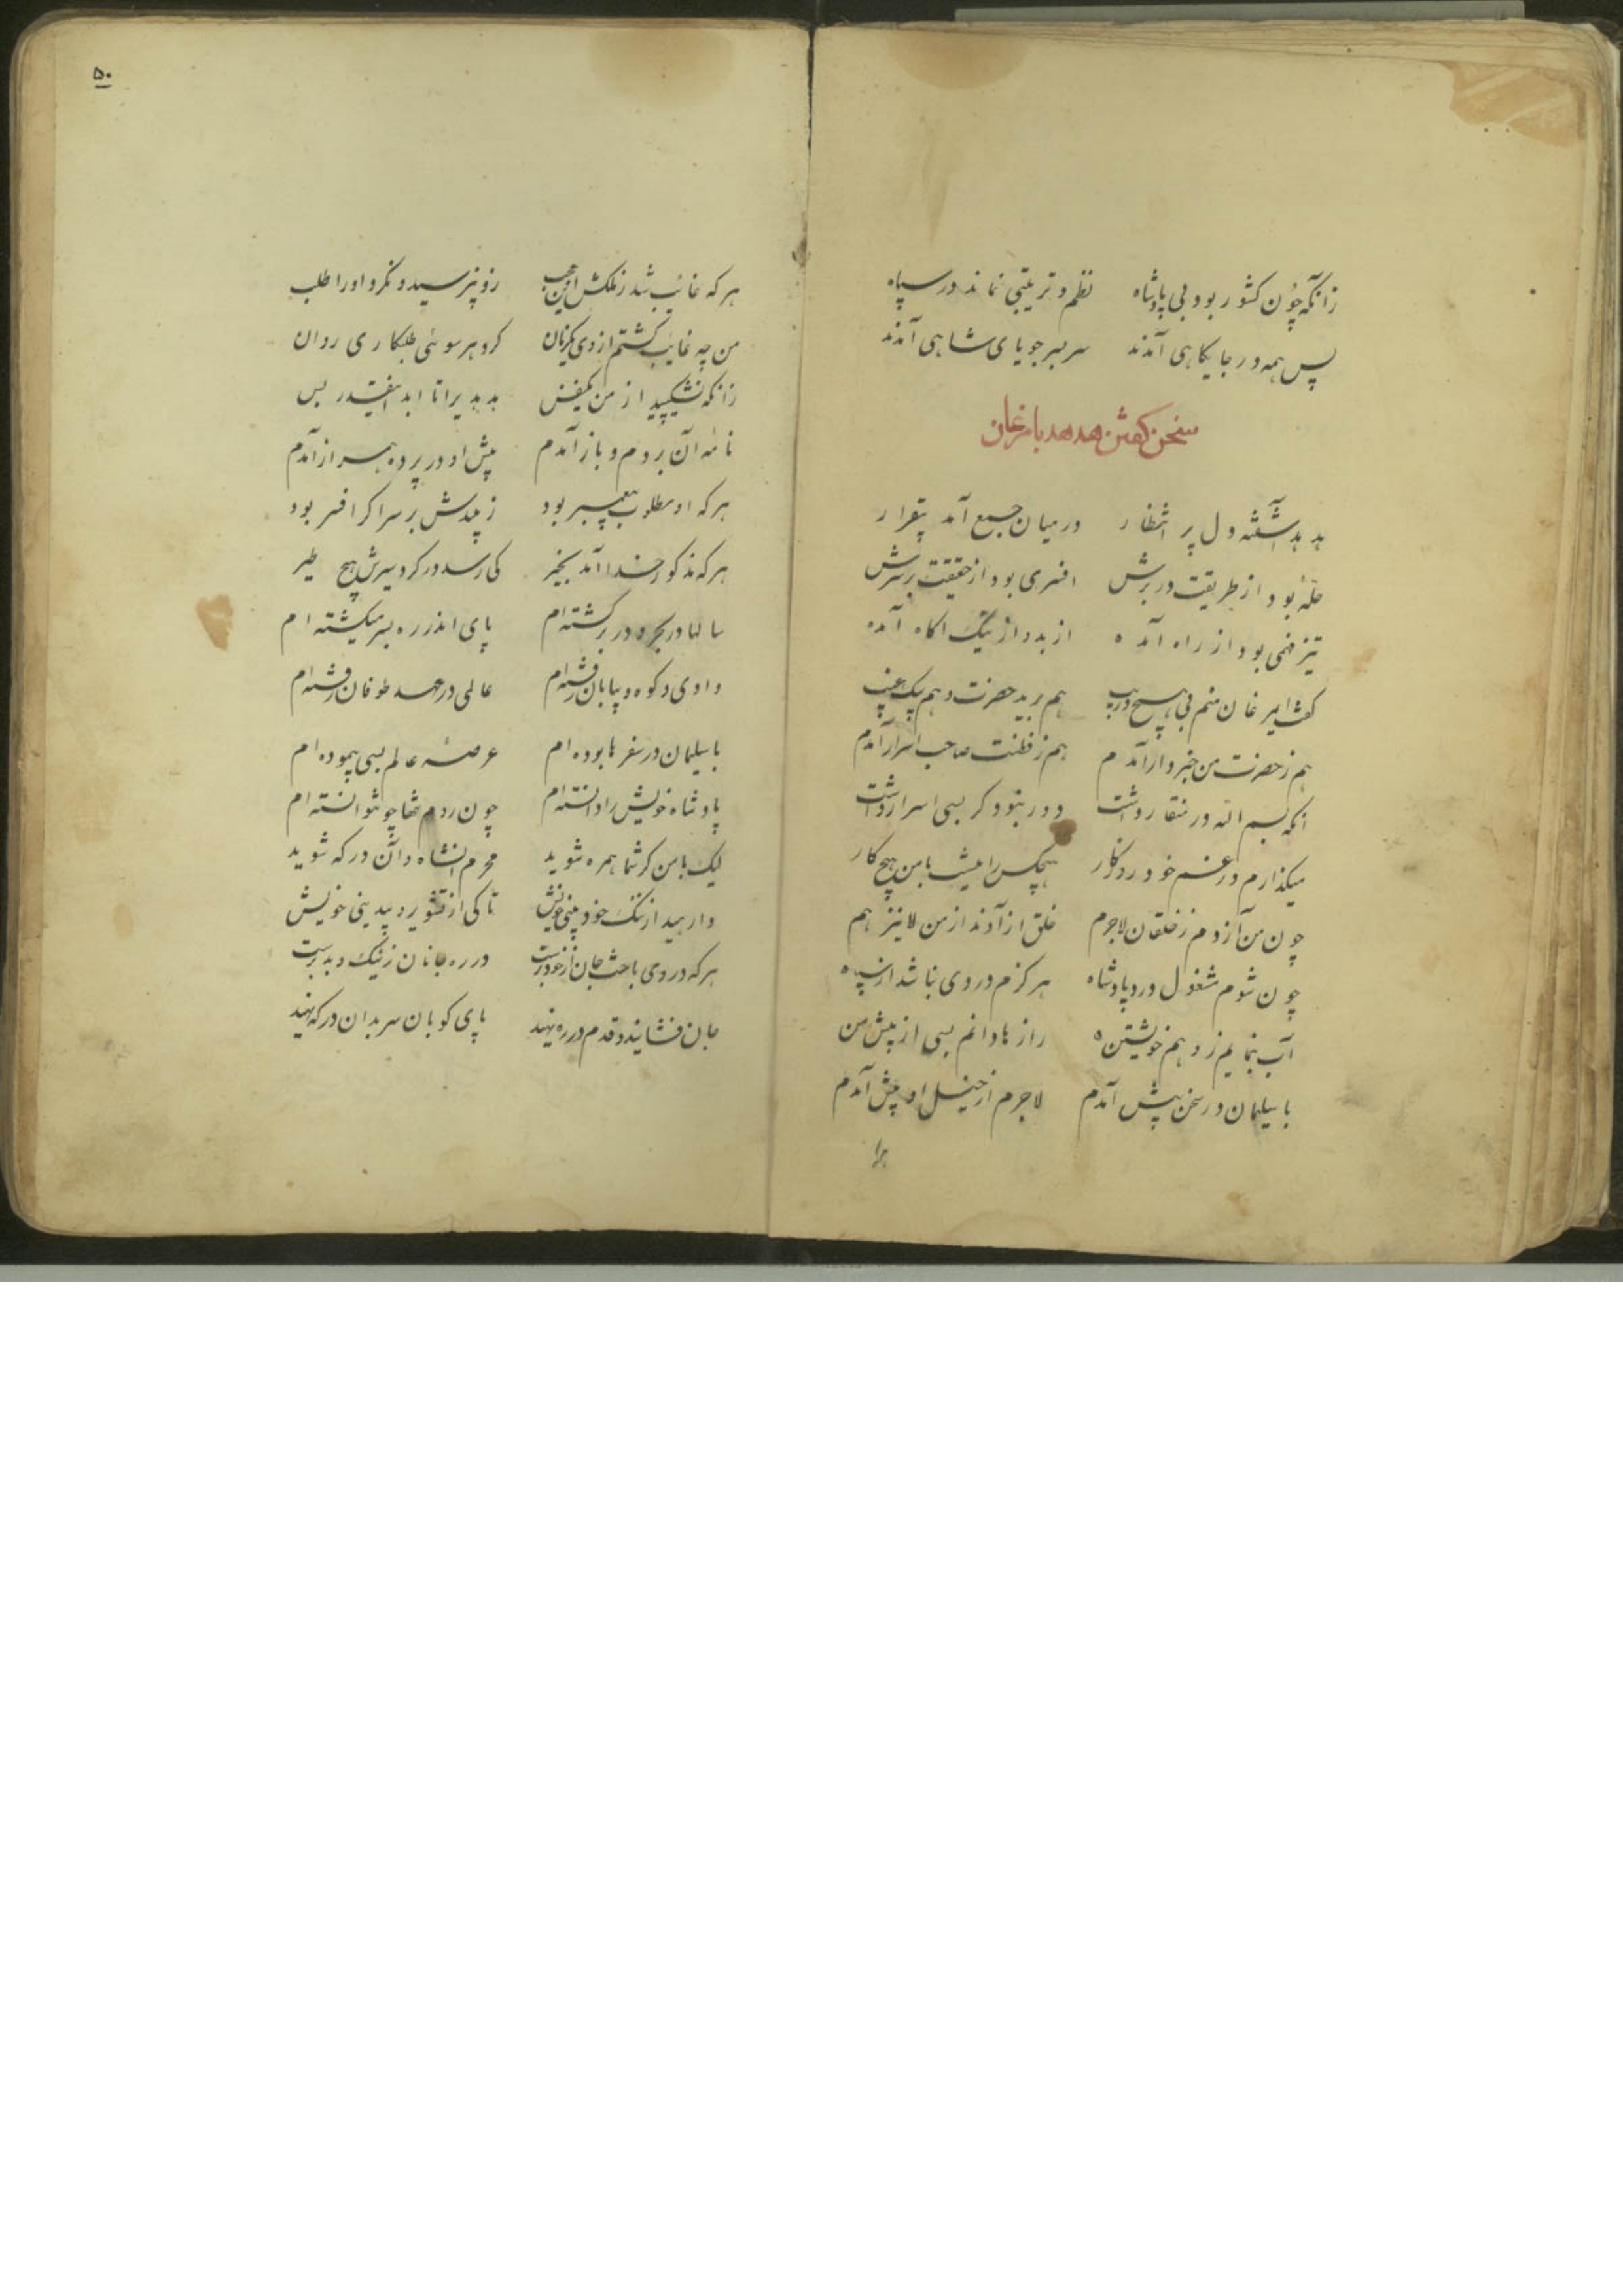 زانکه چون کشور بود بی پادشاه نظم و ترتیبی نماند در سپاه
پس همه در جایکاهی آمدند سر بسر جویای شاهی آمدند
سخن کفتن هدهد با مرغان
هدهد آشفته دل پر انتظار در میان جمع آمد بیقرار
حله بود از طریقت در برش افسری بود از حقیقت بر سرش
تیز فهمی بود از راه آمده از بد و از نیک اکاه آمده
کفت ای مرغان منم بی هیچ ریب هم برید حضرت و هم پیک غیب
هم ز حضرت من خبردار آمدم هم ز فطنت صاحب اسرار آمدم
انکه بسم الله در منقار داشت دور نبود کر بسی اسرار داشت
میکذارم در غم خود روزکار هیچکس را نیست با من هیچ کار
چون من آزادم ز خلقان لاجرم خلق آزادند از من نیز هم
چون شوم مشغول درد پادشاه هرکزم دردی نباشد از سپاه
آب بنمایم ز وهم خویشتن رازها دانم بسی از پیش من
با سلیمان در سخن پیش آمدم لاجرم از خیل او پیش آمدم
۵۰
هر که غایب شد ز ملکش این عجب زو نپرسید و نکرد او را طلب
من چه غایب کشتم از وی یکزمان کرد هر سوئی طلبکاری روان
زانکه نشکیبید از من یکنفس هدهدیرا تا ابد اینقدر بس
نامه آن بردم و باز آمدم پیش او در پرده همراز آمدم
هر که او مطلوب پیغمبر بود زیبدش بر سر اکر افسر بود
هر که مذکور خدا آمد بخیر کی رسد در کرد سیرش هیچ طیر
سالها در بحر و در بر کشته ام پای اندر ره بسر میکشته ام
وادی و کوه و بیابان رفته ام عالمی در عهد طوفان رفته ام
با سلیمان در سفرها بوده ام عرصه عالم بسی پیموده ام
پادشاه خویش را دانسته ام چون روم تنها چو نتوانسته ام
لیک با من کر شما همره شوید محرم انشاه و آن درکه شوید
وارهید از ننک خود بینی خویش تا کی از تشویر و بیدینی خویش
هر که در وی باخت جان از خود برست در ره جانان ز نیک و بد برست
جان فشانید و قدم در ره نهید پای کوبان سر بدان درکه نهید